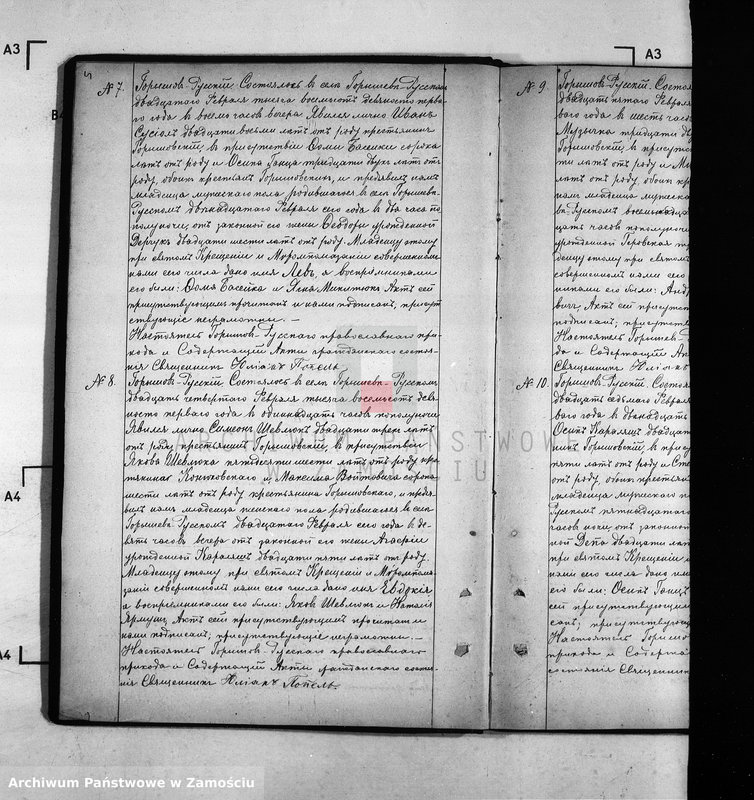 A3
A3
5
№ 7.
Горышовъ-Русскiй. Состоялось въ селѣ Горышевѣ-Русскомъ
двадцатаго Февраля тысяча восемьсотъ девяносто перва-
го года въ восемь часовъ вечера. Явился лично Иванъ
двадцати восьми лѣтъ отъ роду крестьянинъ
Горышовскiй, въ присутствiи Ѳомы Басейки сорока
лѣтъ отъ роду и Осипа Гонца тридцати двухъ лѣтъ отъ
роду, обоихъ крестьянъ Горышовскихъ, и предъявилъ намъ
младенца мужескаго пола родившагося въ селѣ Горышевѣ-
Русскомъ двѣнадцатаго Февраля сего года въ два часа по
полуночи, отъ законной его жены Ѳеодоры урожденной
двадцати шести лѣтъ отъ роду. Младенцу этому
при святомъ Крещенiи и Мѵропомазанiи совершенномъ
нами сего числа дано имя Левъ, а восприемниками
его были: Ѳома Басейка и Анна Микитюкъ. Актъ сей
присутствующимъ прочитанъ и нами подписанъ, присут-
ствующiе неграмотны. —
Настоятель Горышов-Русскаго православнаго при-
хода и Содержащiй Акты гражданскаго состоя-
нiя Священникъ Юлiанъ Попель
№ 8.
Горышовъ-Русскiй. Состоялось въ селѣ Горышевѣ-Русскомъ
двадцать четвертаго Февраля тысяча восемьсотъ девя-
носто перваго года въ одинадцать часовъ пополуночи
Явился лично Семенъ Шевлюкъ двадцати трехъ лѣтъ
отъ роду крестьянинъ Горышовскiй, въ присутствiи
Якова Шевлюка пятьдесяти шести лѣтъ отъ роду кре-
стьянина и Максима Войтовича сорока
шести лѣтъ отъ роду крестьянина Горышовскаго, и предъя-
вилъ намъ младенца женскаго пола родившагося въ селѣ
Горышевѣ-Русскомъ двадцатаго Февраля сего года въ де-
вять часовъ вечера отъ законной его жены Агафiи
урожденной Каралящъ двадцати пяти лѣтъ отъ роду.
Младенцу этому при святомъ Крещенiи и Мѵропома-
занiи совершенномъ нами сего числа дано имя Евдокiя
а восприемниками его были: Яковъ Шевлюкъ и Наталiя
Ярмушъ. Актъ сей присутствующимъ прочитанъ и
нами подписанъ, присутствующiе неграмотны. —
Настоятель Горышов-Русскаго православнаго
прихода и Содержащiй Акты гражданскаго состоя-
нiя Священникъ Юлiанъ Попель.
№ 9
Горышовъ-Русскiй. Состоя
двадцать пятаго Февраля
ваго года въ шесть часов
тридцати дв
Горышовскiй, въ присутс
ти лѣтъ отъ роду и Ми
лѣтъ отъ роду, обоихъ кре
намъ младенца мужеска
вѣ-Русскомъ
цать часовъ пополуночи
урожденной
денцу этому при святомъ
совершенномъ нами сего
никами его были: Андр
вичъ, Актъ сей присутст
подписанъ; присутству
Настоятель Горышов-
да и Содержащiй Ак
Священникъ Юлiанъ
№ 10.
Горышовъ-Русскiй. Состоя
двадцать седьмаго Февраля
ваго года въ двѣнадцать
Осипъ Каралящъ двад
нинъ Горышовскiй, въ прису
пяти лѣтъ отъ роду и Сте
отъ роду, обоихъ крестьян
младенца мужескаго п
Русскомъ пятнадцатаго
часовъ ночи, отъ законной
ной двадцати лѣтъ
при святомъ Крещенi
нами сего числа дано имя
его были: Осипъ Гонцъ
сей присутствующимъ
санъ; присутствующ
Настоятель Горышо
прихода и Содержа
состоянiя Священникъ
A4
A4
ARCHIWUM PAŃSTWOWE
W ZAMOŚCIU
Archiwum Państwowe w Zamościu